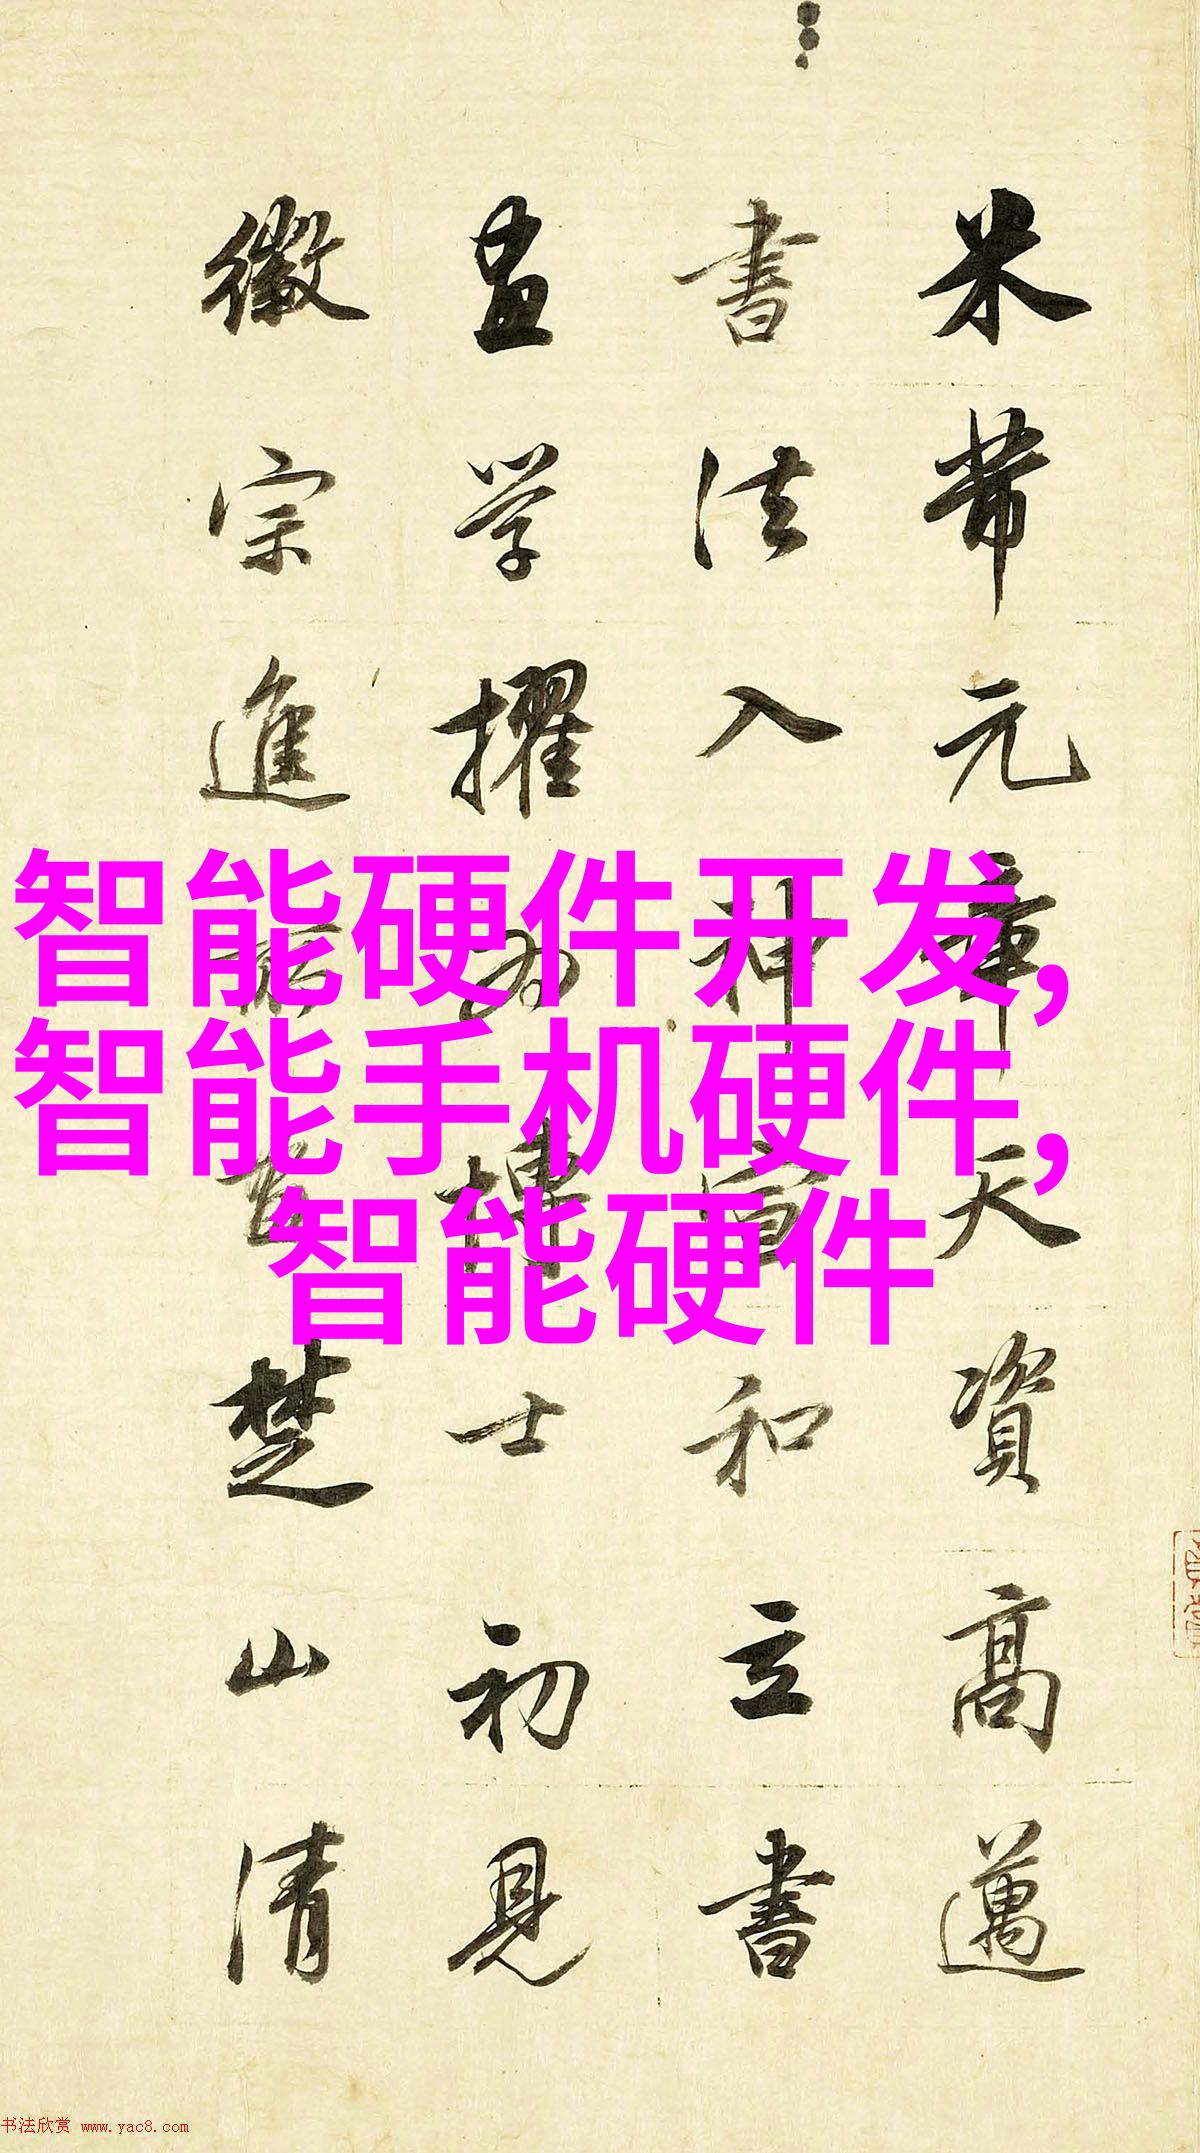 米芾元章天資高邁
書法入神宣和立書
畫学擢為博士初見
徽宗進所畫楚山清
智能硬件开发,
智能手机硬件,
智能硬件
书法欣赏 www.yac8.com